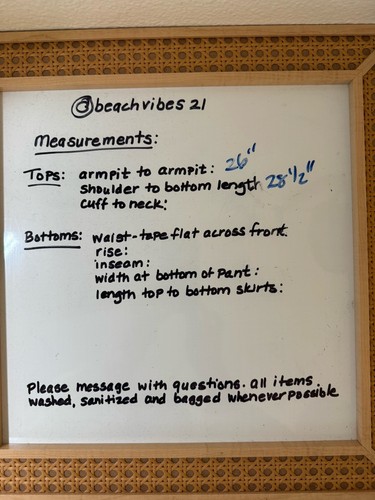 @beachvibes 21
Measurements:
Tops: armpit to armpit: 26"
shoulder to bottom length 28 1/2"
cuff to neck:
Bottoms: waist-tape flat across front.
rise:
inseam:
width at bottom of pant:
length top to bottom skirts:
Please message with questions. all items
washed, sanitized and bagged whenever possible